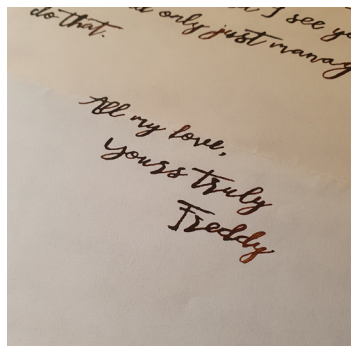 I see
only just
do that.
All my love,
Yours truly
Freddy